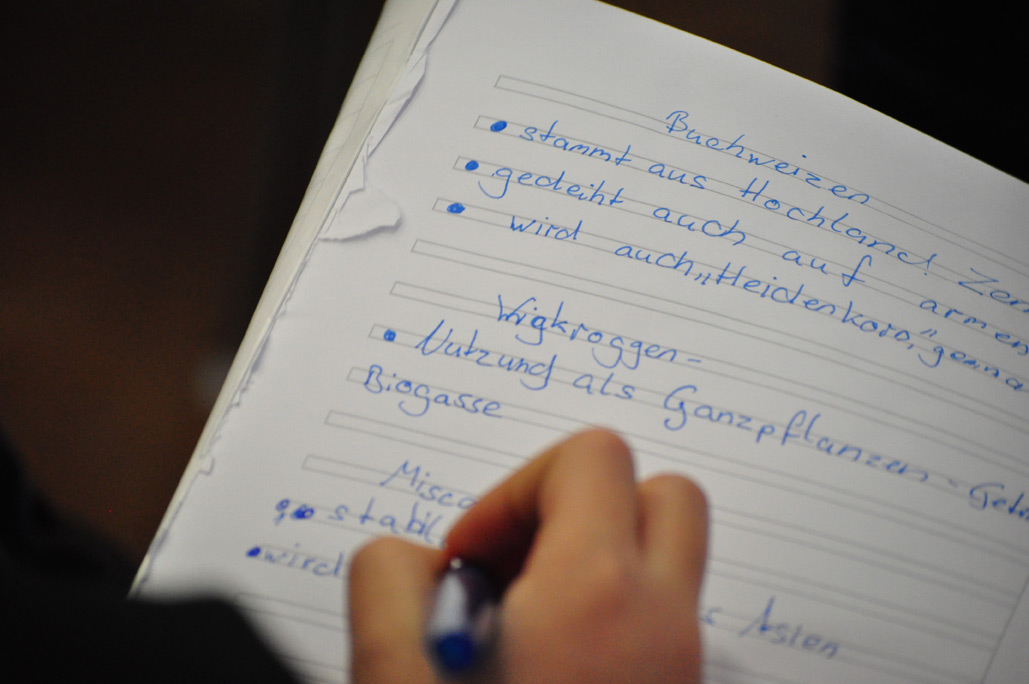 Buchweizen
• stammt aus Hochland Zen
• gedeiht auch auf armen
• wird auch „Heidenkorn", gena
Wigkroggen-
• Nutzung als Ganzpflanzen - Getr
Biogasse
Misc
• stabil
• wird
s Asien